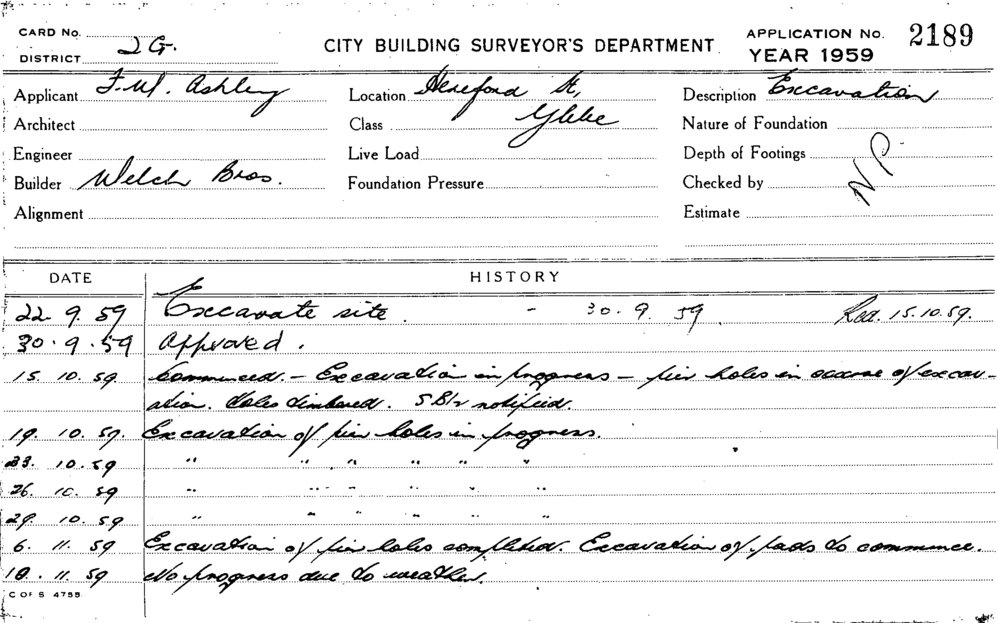 CARD No.
DISTRICT 2G.
CITY BUILDING SURVEYOR'S DEPARTMENT
APPLICATION No. 2189
YEAR 1959
Applicant F.W. Ashley Location Hereford St, Description Excavation
Architect Class Glebe Nature of Foundation
Engineer Live Load Depth of Footings NP
Builder Welch Bros. Foundation Pressure Checked by
Alignment Estimate
DATE HISTORY
22. 9. 59 Excavate site. - 30. 9. 59 Rec. 15.10.59.
30. 9. 59 Approved.
15. 10. 59. Commenced. - Excavation in progress - pier holes in course of excav-
ation. Holes timbered. notified.
19. 10. 59. Excavation of pier holes in progress.
23. 10. 59 " " " " " "
26. 10. 59 " " " " " "
29. 10. 59 " " " " " "
6. 11. 59 Excavation of pier holes completed. Excavation of pads to commence.
10. 11. 59 No progress due to weather.
C OF S 4755